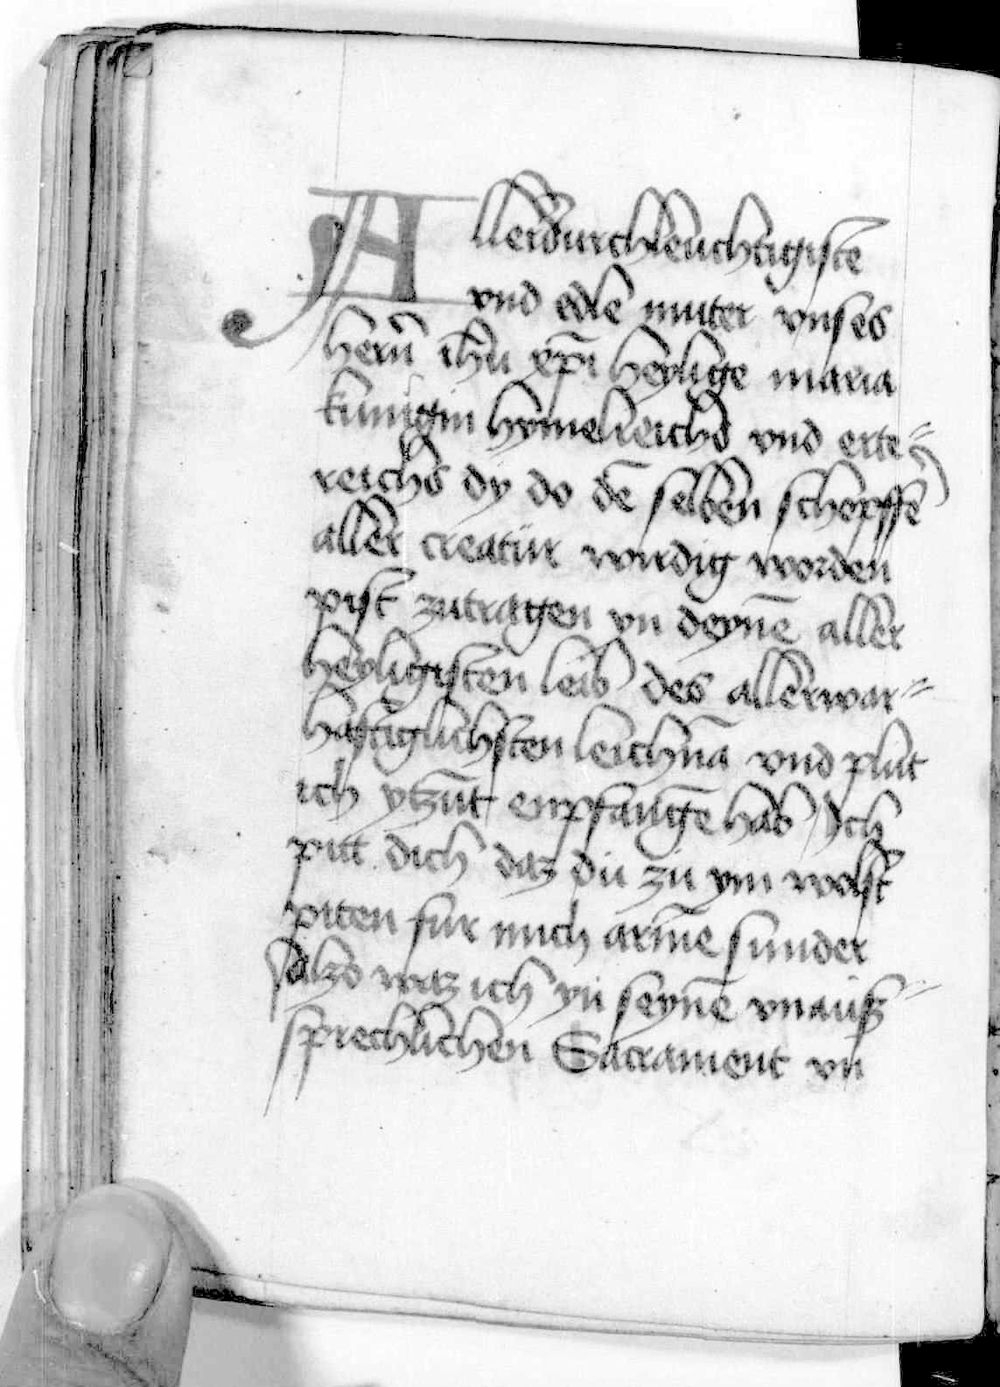 Allerdurchleuchtigiste
vnd edle muter vnses
herñ ihũ xp̃i heylige maria
kunigin hymelreichs vnd erte=
reichs dy do dē selben schopffē
aller creatür wirdig worden
pist zutragen vn̄ deynē aller
heyligisten leib des allerwar=
hafftiglichsten leichnā vnd plut
ich ytzūt enpfangē hab Ich
pitt dich daz dü zü ym wolst
piten fur mich armē sunder
alzo waz ich yn̄ seynē vnaüß=
sprechlichen Sacrament vn̄